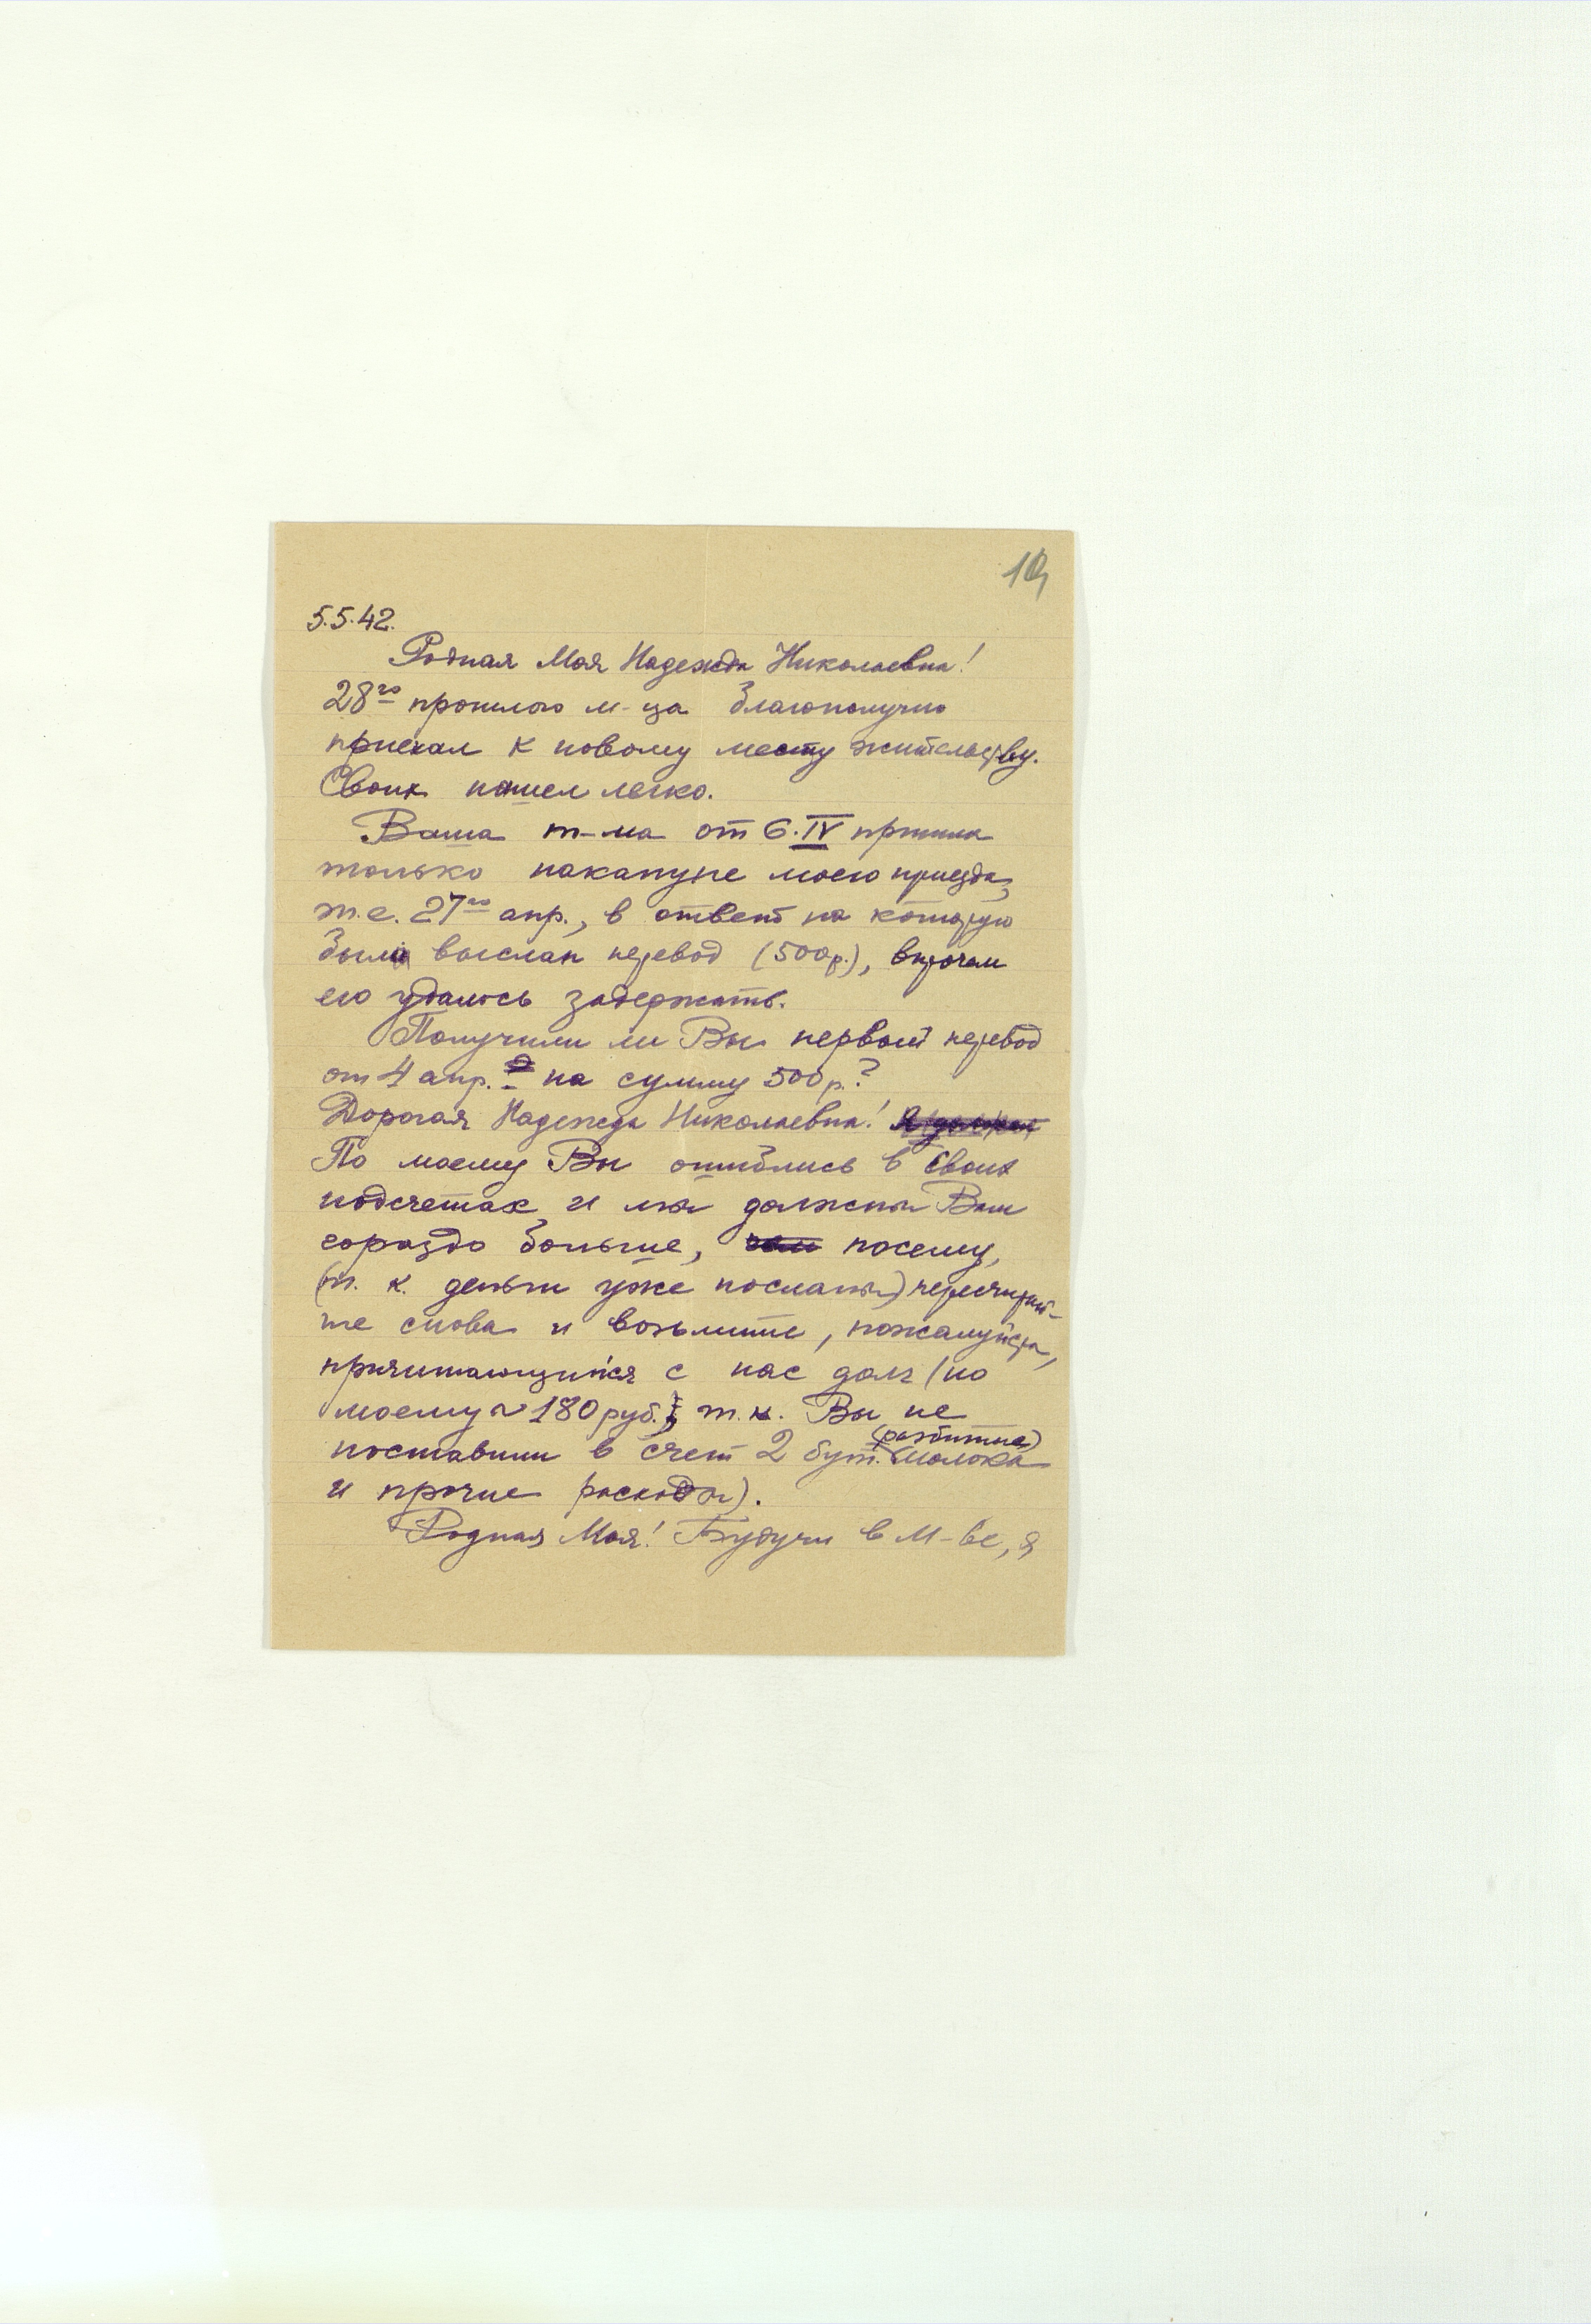 10
5.5.42.
Родная Моя Надежда Николаевна!
28го прошлого м-ца благополучно
приехал к новому месту жительству.
Своих нашел легко.
Ваша т-ма от 6.IV пришла
только накануне моего приезда,
т.е. 27го апр., в ответ на которую
был выслан перевод (500р.), впрочем
его удалось задержать.
Получили ли Вы первый перевод
от 4 апр. на сумму 500р.?
Дорогая Надежда Николаевна! Я должен
По моему Вы ошиблись в своих
подсчетах и мы должны Вам
гораздо больше, чем посему,
(т. к. деньги уже посланы) пересчитай-
те снова и возьмите, пожалуйста,
причитающийся с нас долг (по
моему ~ 180 руб., т.к. Вы не
поставили в счет 2 бут. (разбитые) молока
и прочие расходы).
Родная Моя! Будучи в М-ве, я